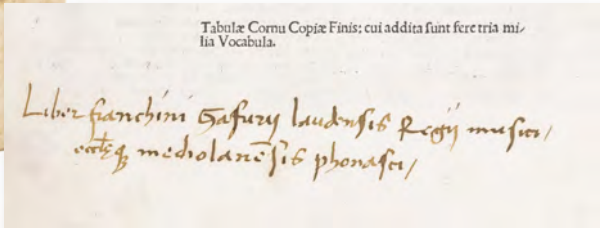 Tabulæ Cornu Copiæ Finis: cui addita ſunt fere tria mi-
lia Vocabula.
Liber franchini Gafurij laudenſis Regij muſici/
eccleq̃ mediolanẽſis phonaſci/